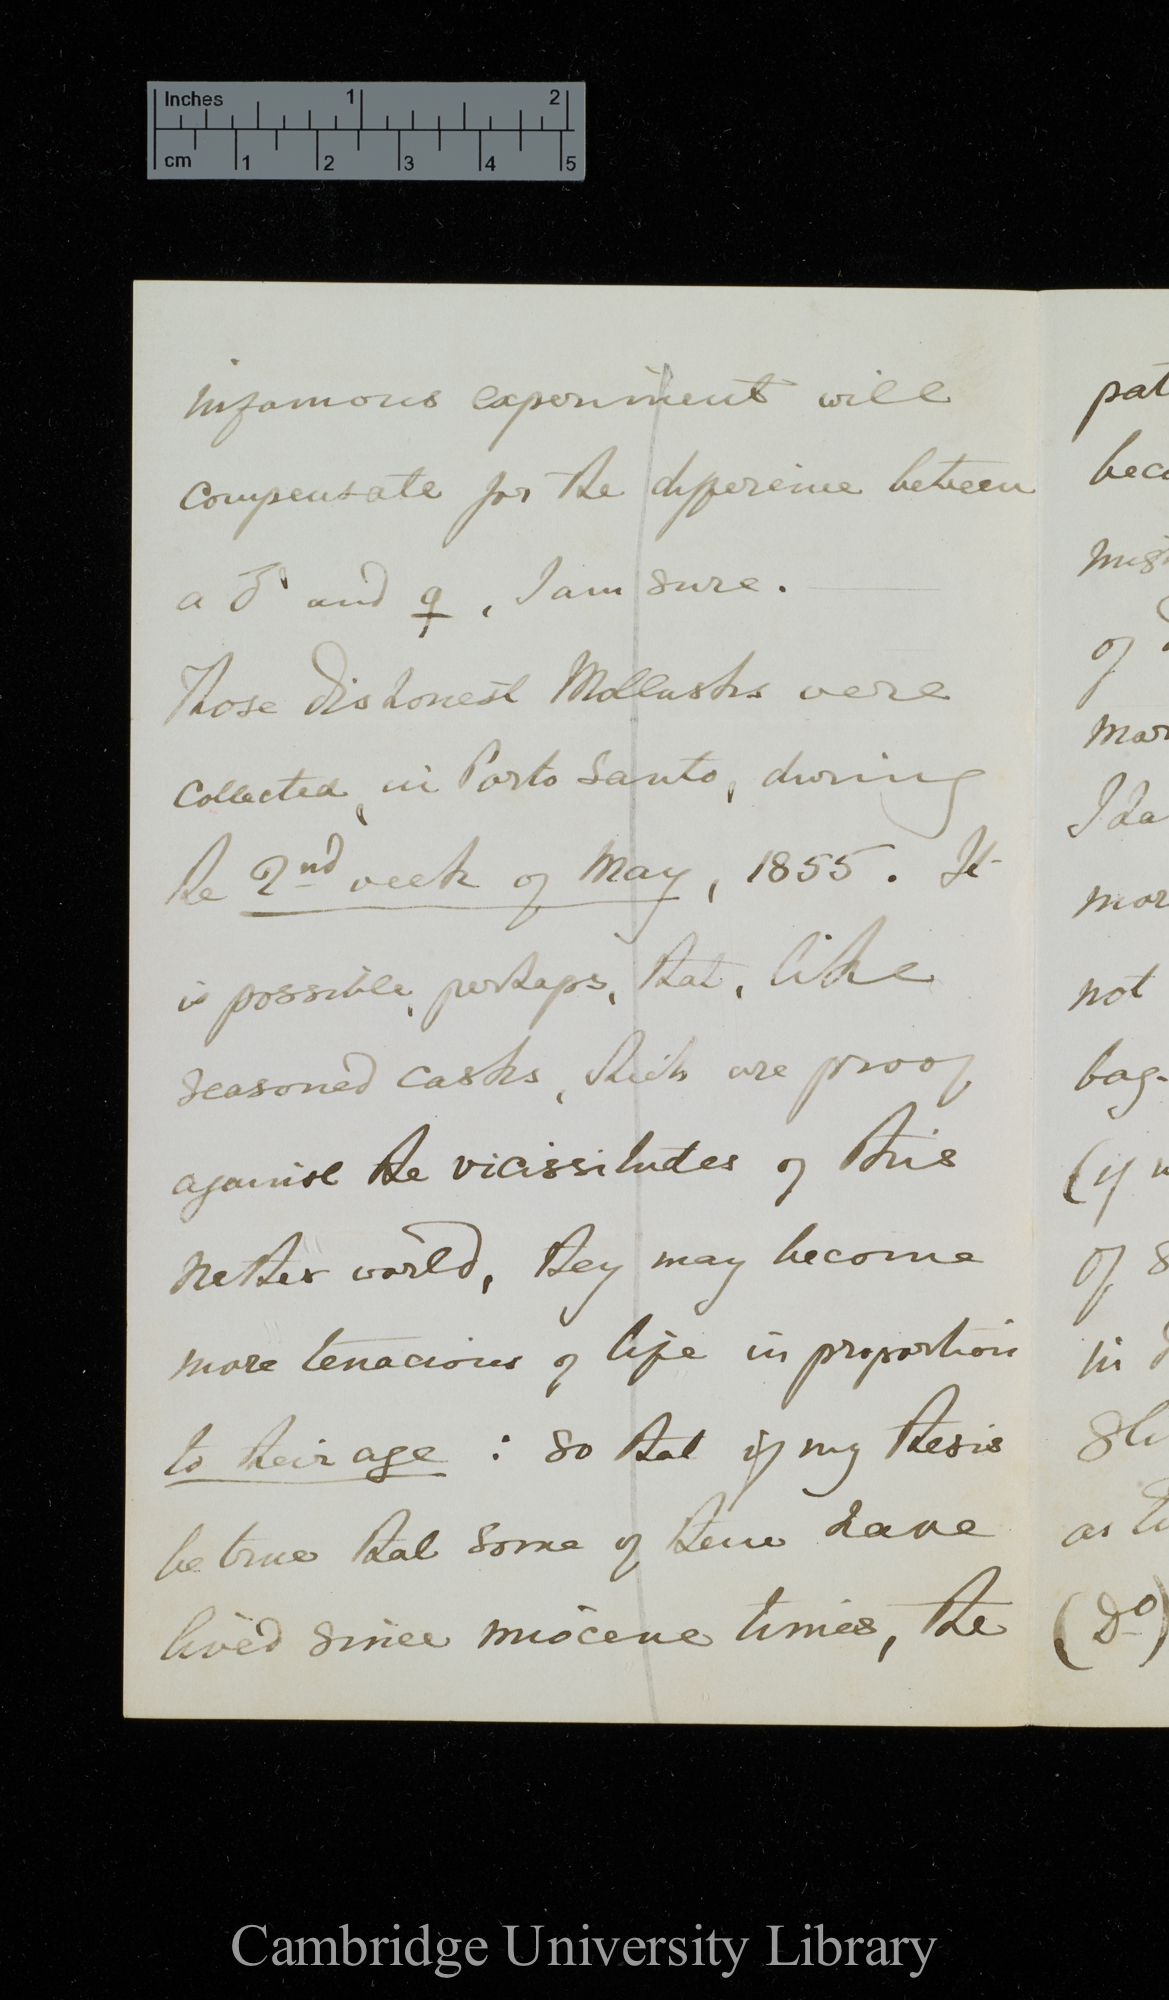 Inches 1 2
cm 1 2 3 4 5
infamous experiment will
compensate for the difference between
a ♂ and ♀, I am sure.
Those dishonest Mollusks were
collected, in Porto Santo, during
the 2nd week of May, 1855. It
is possible, perhaps, that, like
seasoned casks, which are proof
against the vicissitudes of this
nether world, they may become
more tenacious of life in proportion
to their age : so that if my thesis
be true that some of them have
lived since miocene times, the
pat
beca
mig
of
mar
I da
mor
not
bag-
(if
of
in
as
(Do)
Cambridge University Library